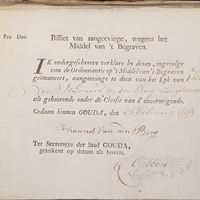 Pro Deo.
Billet van aangeevinge, wegens het
Middel van 't Begraven.
IK ondergeschreeve verklare by dezen, ingevolge
van de Ordonnantie op 't Middel van 't Begraven
geëmaneert, aangeevinge te doen van het Lyk van
als gehoorende onder de Classis van d'onvermogende.
Gedaan binnen GOUDA, den
Johannes van den Berg
Ter Secretarye der Stad GOUDA,
geteikent op datum als boven.